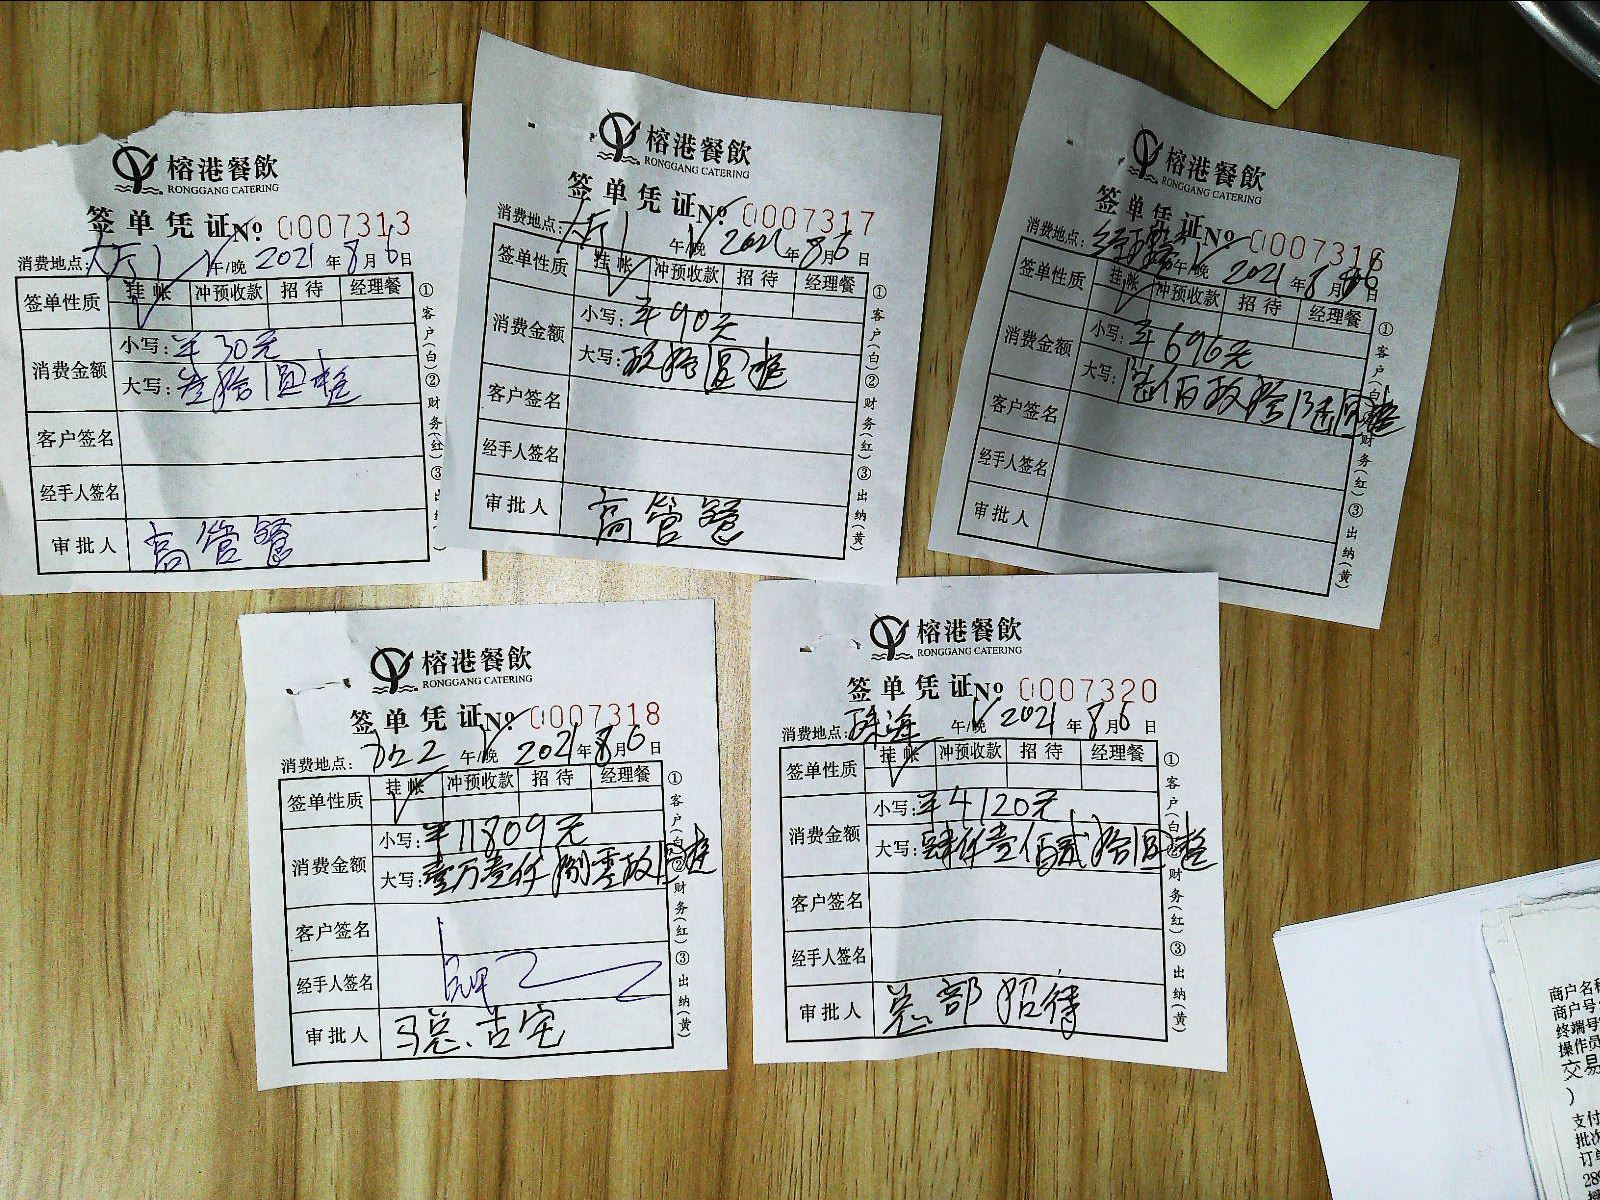 榕港餐飲
RONGGANG CATERING
签单凭证 No 0007313
消费地点: 大厅1 午/晚 2021年8月6日
签单性质 挂帐 冲预收款 招待 经理餐
消费金额
小写: ¥30元
大写: 叁拾圆整
客户签名
经手人签名
审批人 高管餐
①客户(白)②财务(红)③出
榕港餐飲
RONGGANG CATERING
签单凭证 No 0007317
消费地点: 大厅1 午/晚 2021年8月6日
签单性质 挂帐 冲预收款 招待 经理餐
消费金额
小写: ¥90元
大写: 玖拾圆整
客户签名
经手人签名
审批人 高管餐
①客户(白)②财务(红)③出纳(黄)
榕港餐飲
RONGGANG CATERING
签单凭证 No 0007316
消费地点: 午/晚 2021年8月6日
签单性质 挂帐 冲预收款 招待 经理餐
消费金额
小写: ¥696元
大写: 陆佰玖拾陆圆整
客户签名
经手人签名
审批人
①客户(白)财务(红)③出纳(黄)
榕港餐飲
RONGGANG CATERING
签单凭证 No 0007318
消费地点: 午/晚 2021年8月6日
签单性质 挂帐 冲预收款 招待 经理餐
消费金额
小写: ¥11809元
大写: 壹万壹仟捌零玖圆整
客户签名
经手人签名
审批人 马总、吉宅
①客户(白)②财务(红)③出纳(黄)
榕港餐飲
RONGGANG CATERING
签单凭证 No 0007320
消费地点: 珠海 午/晚 2021年8月6日
签单性质 挂帐 冲预收款 招待 经理餐
消费金额
小写: ¥4120元
大写: 肆仟壹佰贰拾圆整
客户签名
经手人签名
审批人 总部招待
①客户(白)②财务(红)③出纳(黄)
商户名称
商户号
终端号
操作员
交易
)
支付
批次
订单